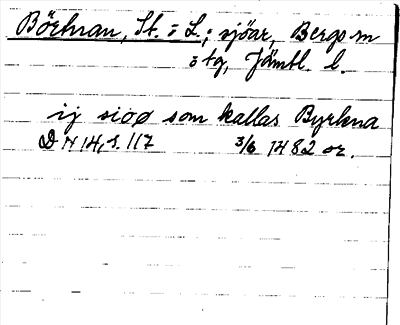 Börtnan, St. = L.; sjöar, Bergs sn
o tg, Jämtl. l.
ij siöo som kallas Byrkna
D N 14, s. 117 3/6 1482 or.